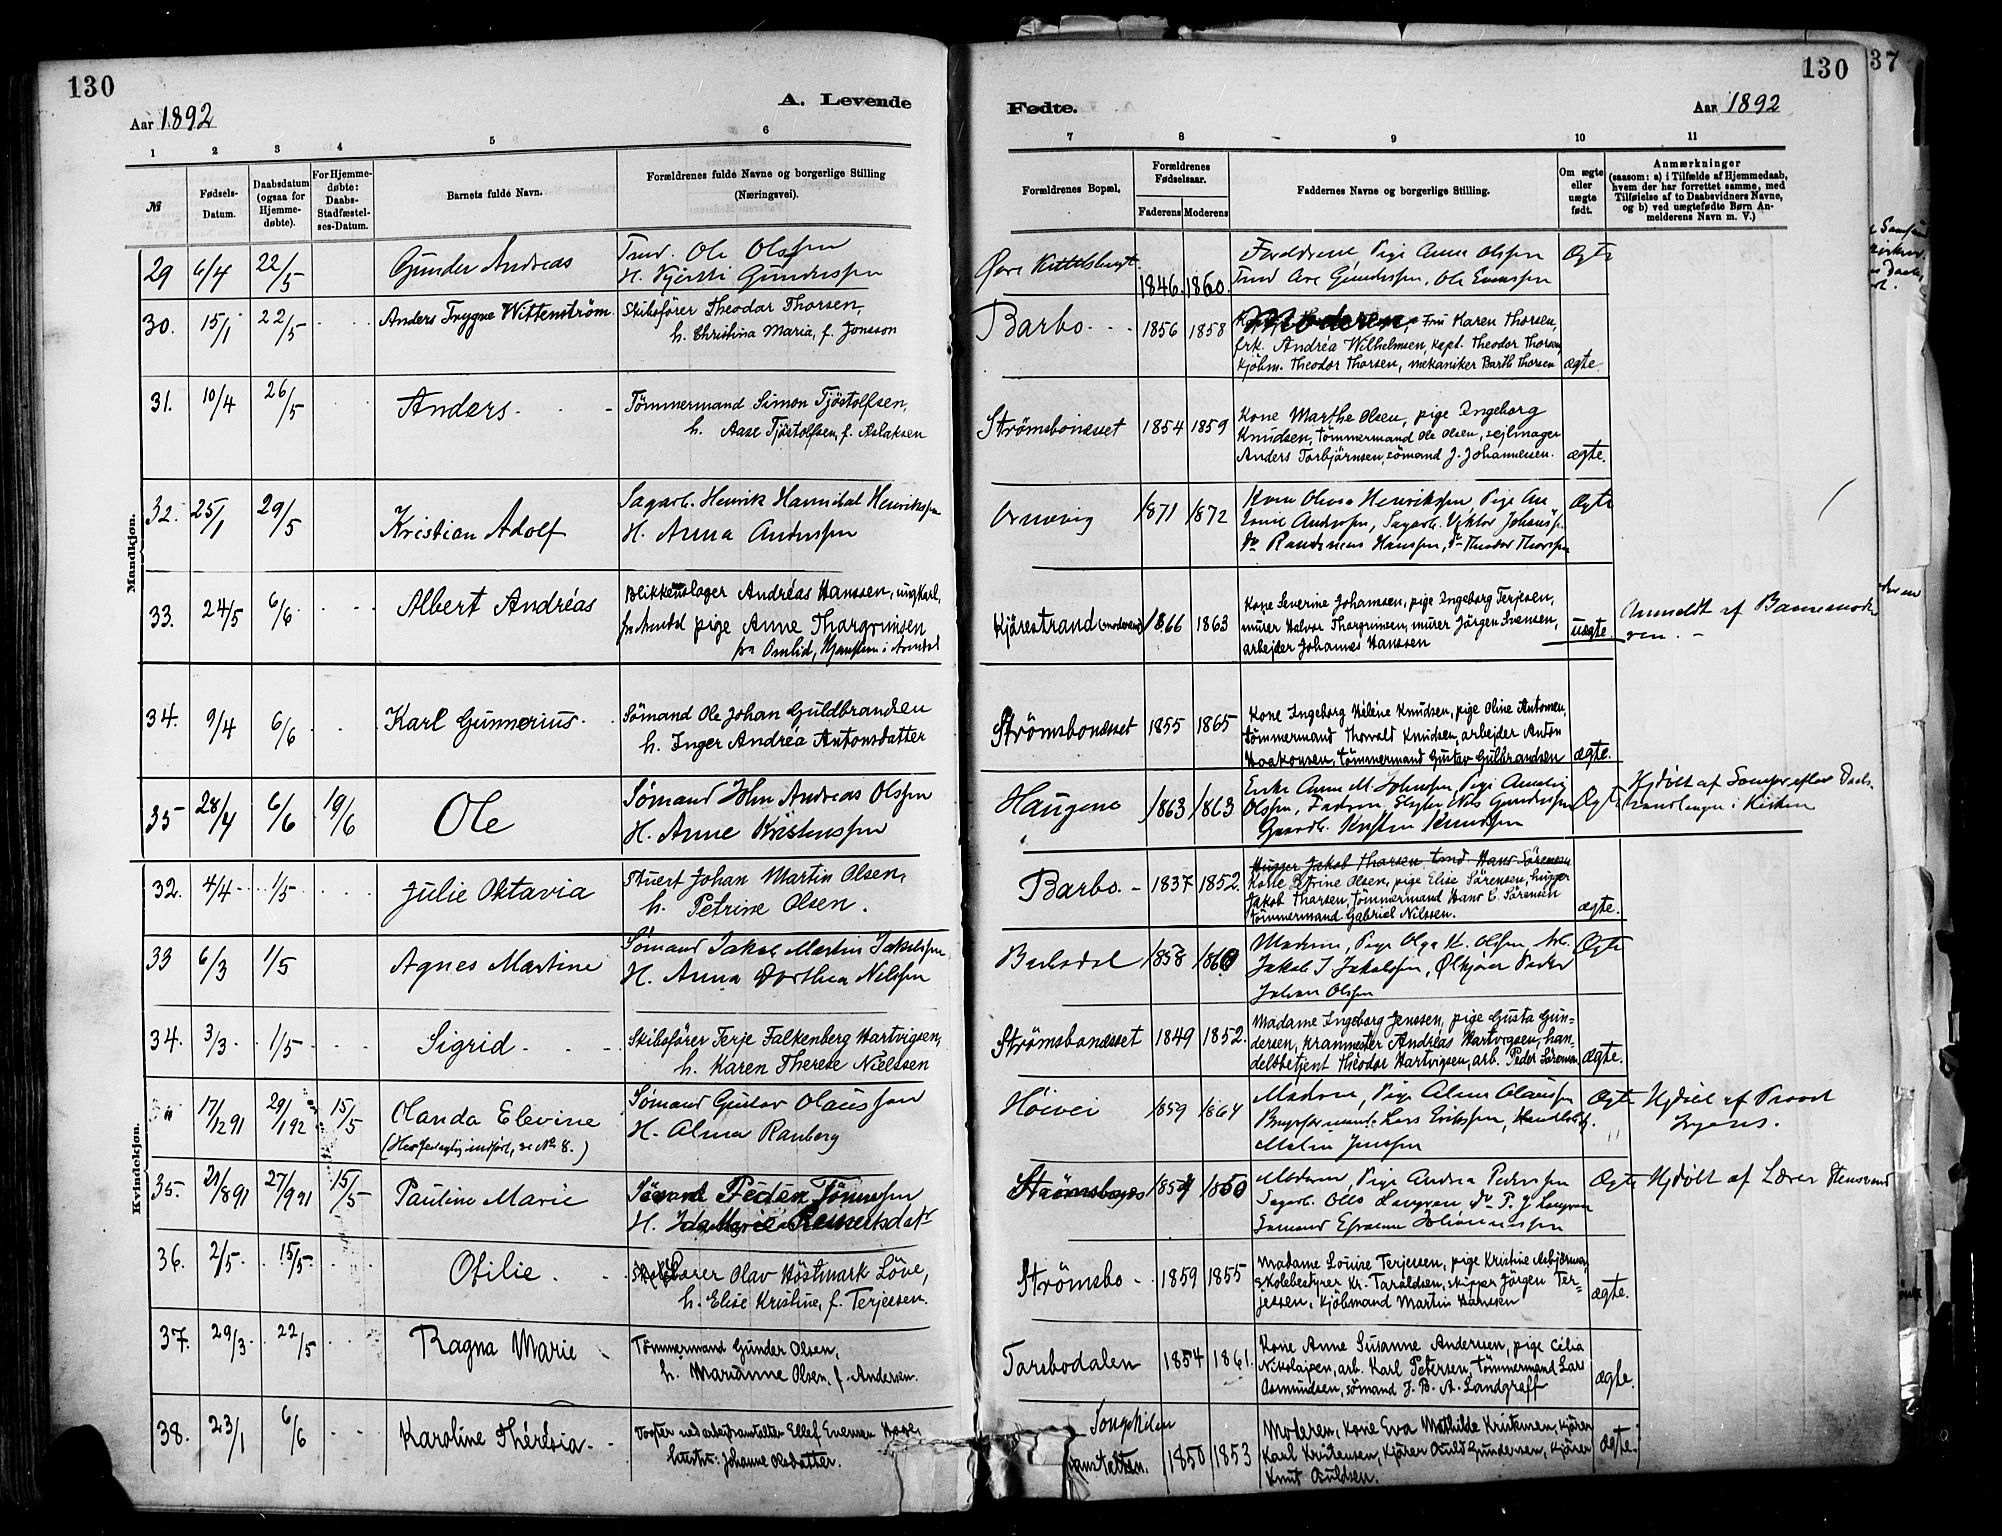 130
Aar 1892
A. Levende
Fødte.
Aar 1892
130
37
1 2 3 4 5 6 7 8 9 10 11
№
Fødsels-Datum.
Daabsdatum (ogsaa for Hjemme-døbte).
For Hjemme-døbte: Daabs-Stadfæstel-ses-Datum.
Barnets fulde Navn.
Forældrenes fulde Navne og borgerlige Stilling
(Næringsvei).
Forældrenes Bopæl.
Forældrenes Fødselsaar.
Faderens Moderens
Faddernes Navne og borgerlige Stilling.
Om ægte eller uægte født.
Anmærkninger
(saasom: a) i Tilfælde af Hjemmedaab,
hvem der har forrettet samme, med
Tilføielse af to Daabsvidners Navne,
og b) ved uægtefødte Børn An-
melderens Navn m. V.)
Mandkjøn.
29 6/4 22/5 Gunder Andreas Tmd. Ole Olssen
H. Kjersti Gunderssen
Øvre 1846. 1860. Forældrene, Pige Anna Olssen
Tmd Ave Gunderssen, Ole Evenssen
Ægte
30. 15/1 22/5 Anders Trygve Wittenström Skibsfører Theodor Thorsen,
h. Christina Maria, f. Jonsson
Barbo 1856 1858 Moderen, Fru Karen Thorsen,
frk. Andréa Wilhelmsen, kapt. Theodor Thorsen,
kjøbm. Theodor Thorsen, mekaniker Barth Thorsen ægte.
31. 10/4 26/5 Anders Tömmermand Simon Tjöstolfsen,
h. Aase Tjöstolfsen, f. Aslaksen
Strømsbonæsset 1854 1859 Kone Marthe Olsen, pige Ingeborg
Knudsen, tømmermand Ole Olsen, sejlmager
Anders Torbjørnsen, sömand J. Johannessen. ægte.
32. 25/1 29/5 Kristian Adolf Sagarb. Henrik Hannibal Henrikssen
H. Anna Anderssen
Arnevig 1871 1872 Kone Olivia Henrikssen, Pige
Anderssen, Sagarb. Viktor
Hanssen, do Theodor Thorssen
Ægte
33. 24/5 6/6 Albert Andréas Blikkenslager Andréas Hanssen, ungkarl,
fra Arendal pige Anne Thorgrimsen
fra Omlid, Tjenstem: i Arendal
Kjørestrand (moderens) 1866 1863 Kone Severine Johansen, pige Ingeborg Terjesen,
murer Halvor Thorgrimsen, murer Jörgen Svensen,
arbejder Johannes Hanssen uægte.
Anmeldt af Barnemode-
ren. –
34. 9/4 6/6 Karl Gunnerius Sömand Ole Johan Guldbrandsen
h. Inger Andréa Antonsdatter
Strømsbonæsset 1855 1865 Kone Ingeborg Heléne Knudsen, pige Oline Antonsen,
tömmermand Thorvald Knudsen, arbejder Anton
Haakonsen, tömmermand Gustav Gulbrandsen ægte.
35 28/4 6/6 19/6 Ole Sømand John Andreas Olssen
H. Anne Kristenssen
Haugene 1863 1863 Enke Anna M. Johnssen, Pige Amalia
Olssen, Nils Gunderssen
Gaardb. Kristen Knudssen
Ægte
Hjdøbt af efter Daabs-
handlingen i Kirken
Kvindekjøn.
32. 4/4 1/5 Julie Oktavia Stuert Johan Martin Olsen,
h. Petrine Olsen.
Barbo. 1837 1852. Hugger Jakob Tharsen tmd Hans Sörensen
Kone Petrine Olsen, pige Elise Sörensen, hugger
Jakob Tharsen, tömmermand Hans E. Sörensen
tömmermand Gabriel Nilssen. ægte.
33 6/3 1/5 Agnes Martine Sømand Jakob Martin Jakobssen
H. Anna Dorthea Nilssen
1858 1860 Moderen, Pige Olga K. Olssen, Arb.
Jakob J Jakobssen, Peder
Johan Olssen
Ægte
34. 3/3 1/5 Sigrid Skibsfører Terje Falkenberg Hartvigsen,
h. Karen Therese Nielssen
Strømsbonæsset 1849 1852. Madame Ingeborg Jenssen, pige Gusta Gun-
dersen, kranmester Andréas Hartvigsen, han-
delsbetjent Théodor Hartvigsen, arb. Peder Sörensen ægte.
" 17/12 91 29/1 92 15/5 Olanda Elevine
(Her feilagtig indført, se No 8.)
Sømand Gustav Olaussen
H. Alma Ranberg
Høivei 1859 1864 Moderen, Pige Alma Olaussen
Lars Erikssen,
Malin Jenssen
Ægte Hjdøbt af Provst
35. 21/8 91 27/9 91 15/5 Pauline Marie Sømand Peder Tønnessen
H. Ida Marie Reinertsdatr
1859 1850 Moderen, Pige Andrea Pederssen
Sagarb. Olls Langvan do P. J Langvan
Sømand Efraim Johannessen
Ægte Hjdøbt af Lærer Stensvand
36. 2/5 15/5 Otilie Olav Höstmark Löve,
h. Elise Kristine, f. Terjesen.
Strömsbo 1859 1855 Madame Louise Terjesen, pige Kristine Asbjörnsen,
skolebestyrer Kr. Taraldsen, skipper Jörgen Ter-
jesen, kjöbmand Martin Hanssen ægte.
37. 29/3 22/5 Ragna Marie Tömmermand Gunder Olsen,
h. Marianne Olsen, f. Andersen.
Torsbodalen 1854 1861. Kone Anne Susanne Andersen, pige Célia
Nikolaisen, arb. Karl Petersen, tömmermand Lars
Osmundsen, sömand J. B. A. Landgraff ægte.
38. 23/1 6/6 Karoline Thérésia Vogter ved arbejdsanstalten Ellef Evensen
Johanne Olsdatter.
Songekilen
1850 1853 Moderen, kone Eva Mathilde Kristensen, kjører
Karl Kristensen, kjörer Auld Gundersen, kjörer
Knut Auldsen. ægte.